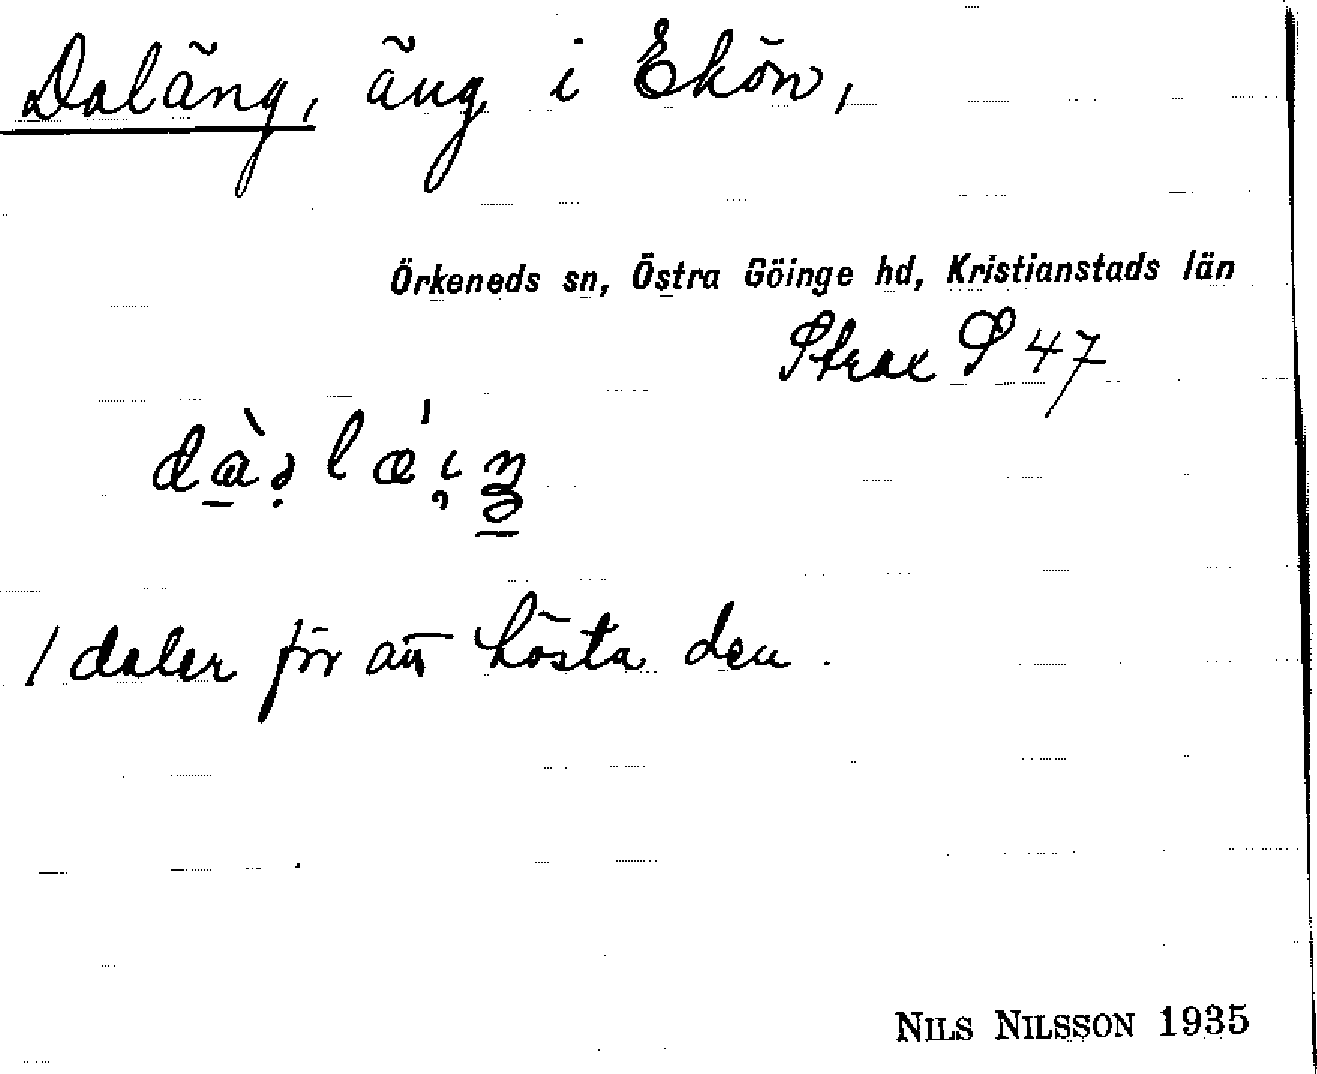 Daläng, äng i Ekön,
Örkeneds sn, Östra Göinge hd, Kristianstads län
Strax S 47
1 daler för att hösta den.
NILS NILSSON 1935